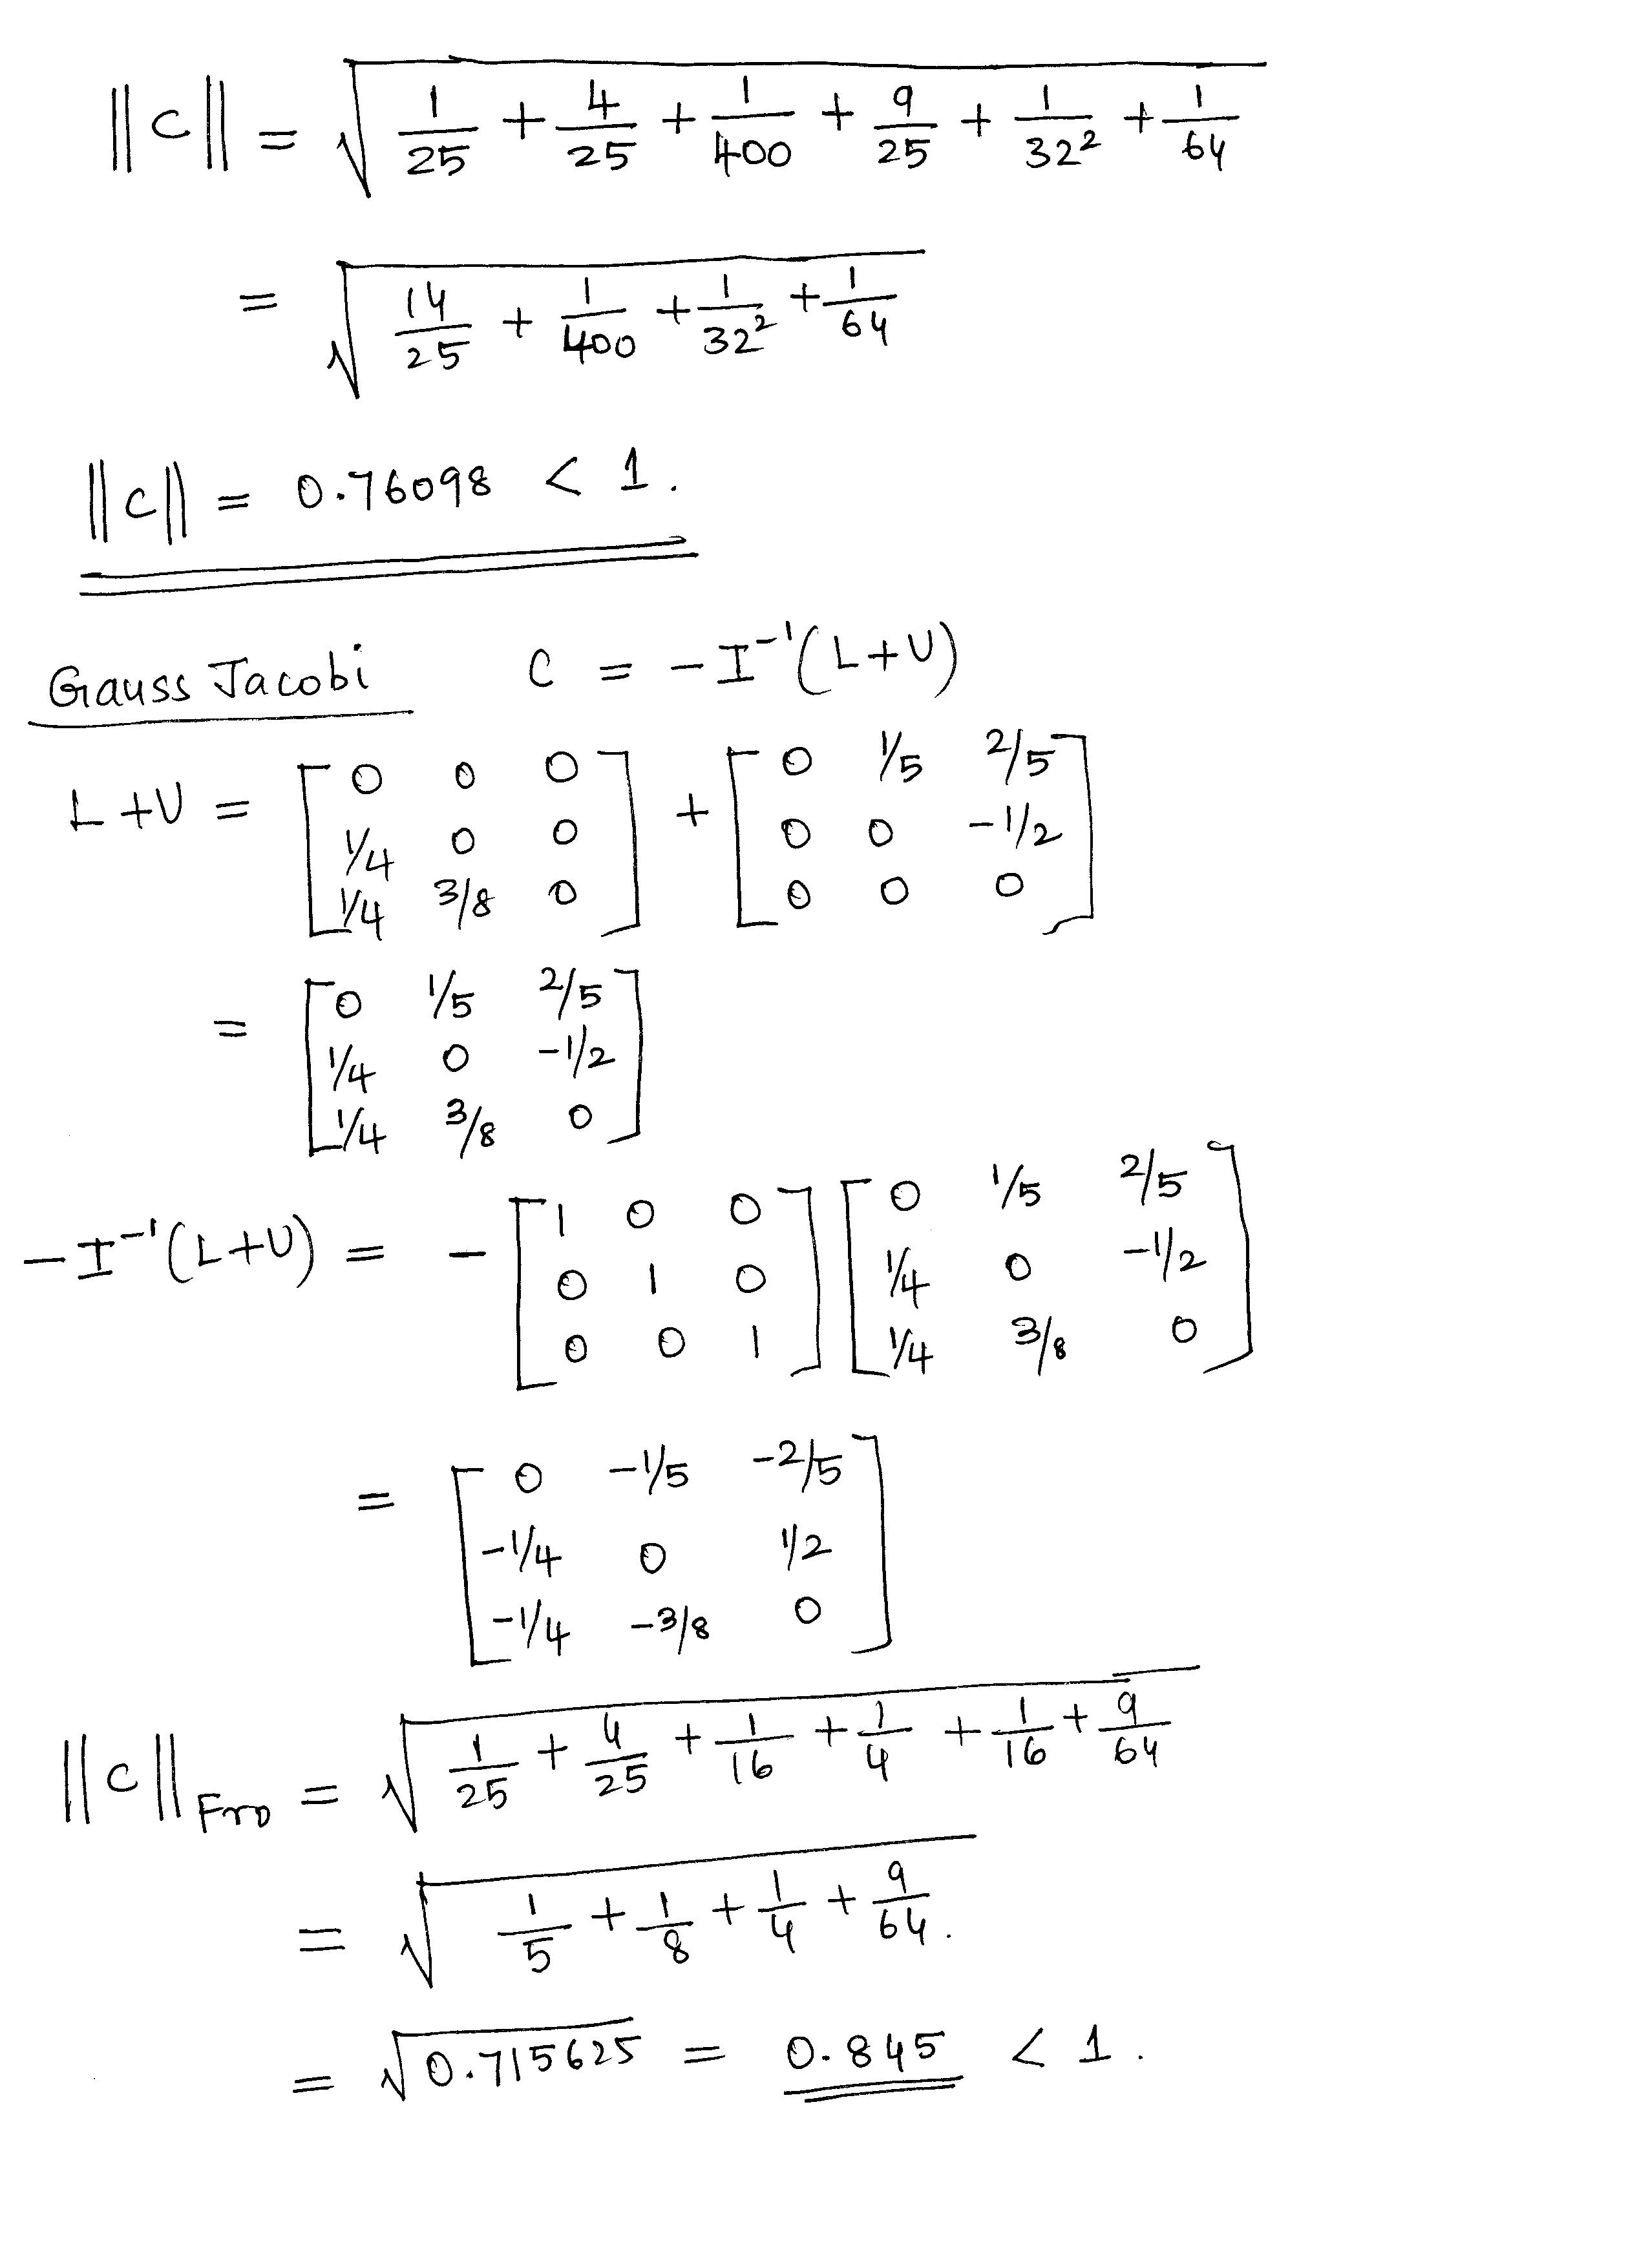 ||C|| = √(1/25 + 4/25 + 1/400 + 9/25 + 1/32² + 1/64)
= √(14/25 + 1/400 + 1/32² + 1/64)
||C|| = 0.76098 < 1.
Gauss Jacobi C = -I⁻¹(L+U)
L+U = [0 0 0; 1/4 0 0; 1/4 3/8 0] + [0 1/5 2/5; 0 0 -1/2; 0 0 0]
= [0 1/5 2/5; 1/4 0 -1/2; 1/4 3/8 0]
-I⁻¹(L+U) = -[1 0 0; 0 1 0; 0 0 1] [0 1/5 2/5; 1/4 0 -1/2; 1/4 3/8 0]
= [0 -1/5 -2/5; -1/4 0 1/2; -1/4 -3/8 0]
||C||Fro = √(1/25 + 4/25 + 1/16 + 1/4 + 1/16 + 9/64)
= √(1/5 + 1/8 + 1/4 + 9/64).
= √0.715625 = 0.845 < 1.